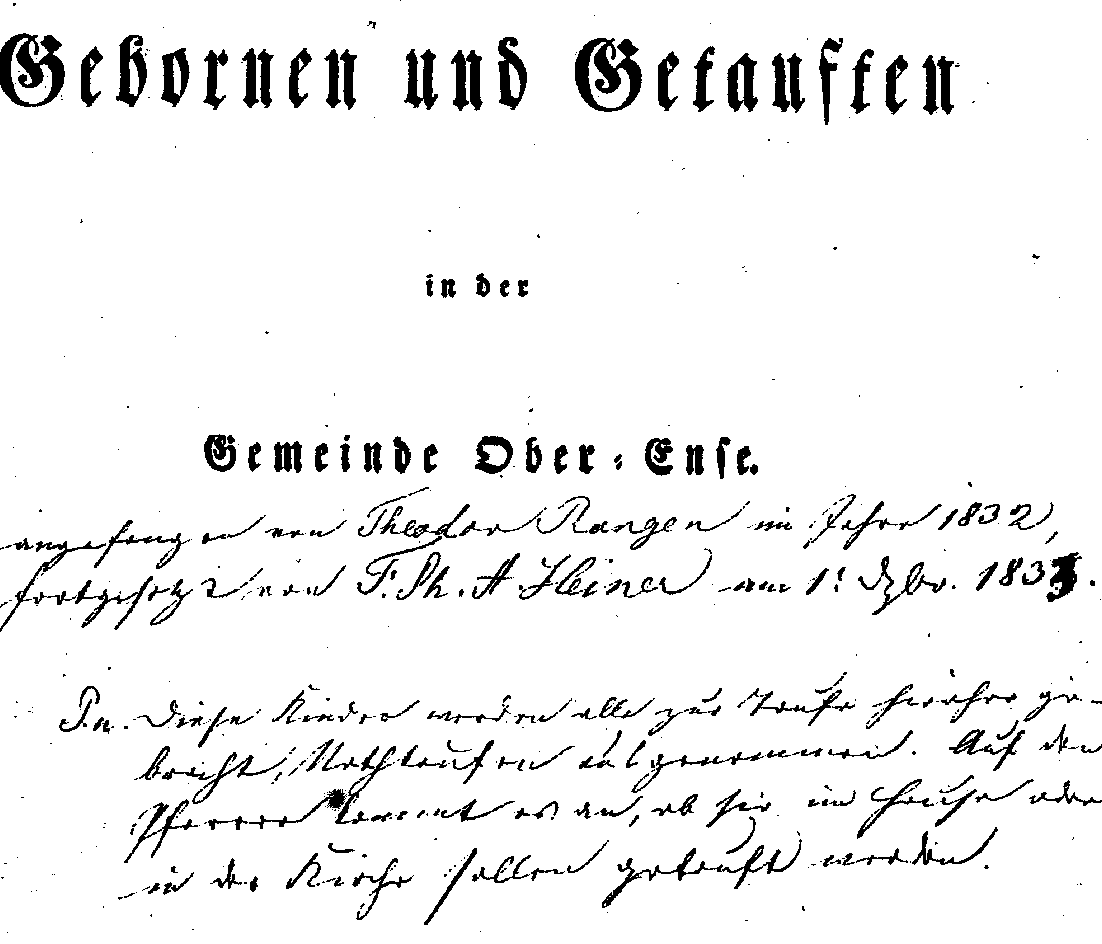 Gebornen und Getauften
in der
Gemeinde Ober-Ense.
angefangen von Theodor Rangen im Jahre 1832,
fortgesetzt von F. Th. A Heiner am 1! Dzbr. 183
Diese Kinder werden alle zur Taufe hierher ge-
bracht, Nothtaufen ausgenommen. Auf den
Pfarrer kommt es an, ob sie im Hause oder
in der Kirche sollen getauft werden.